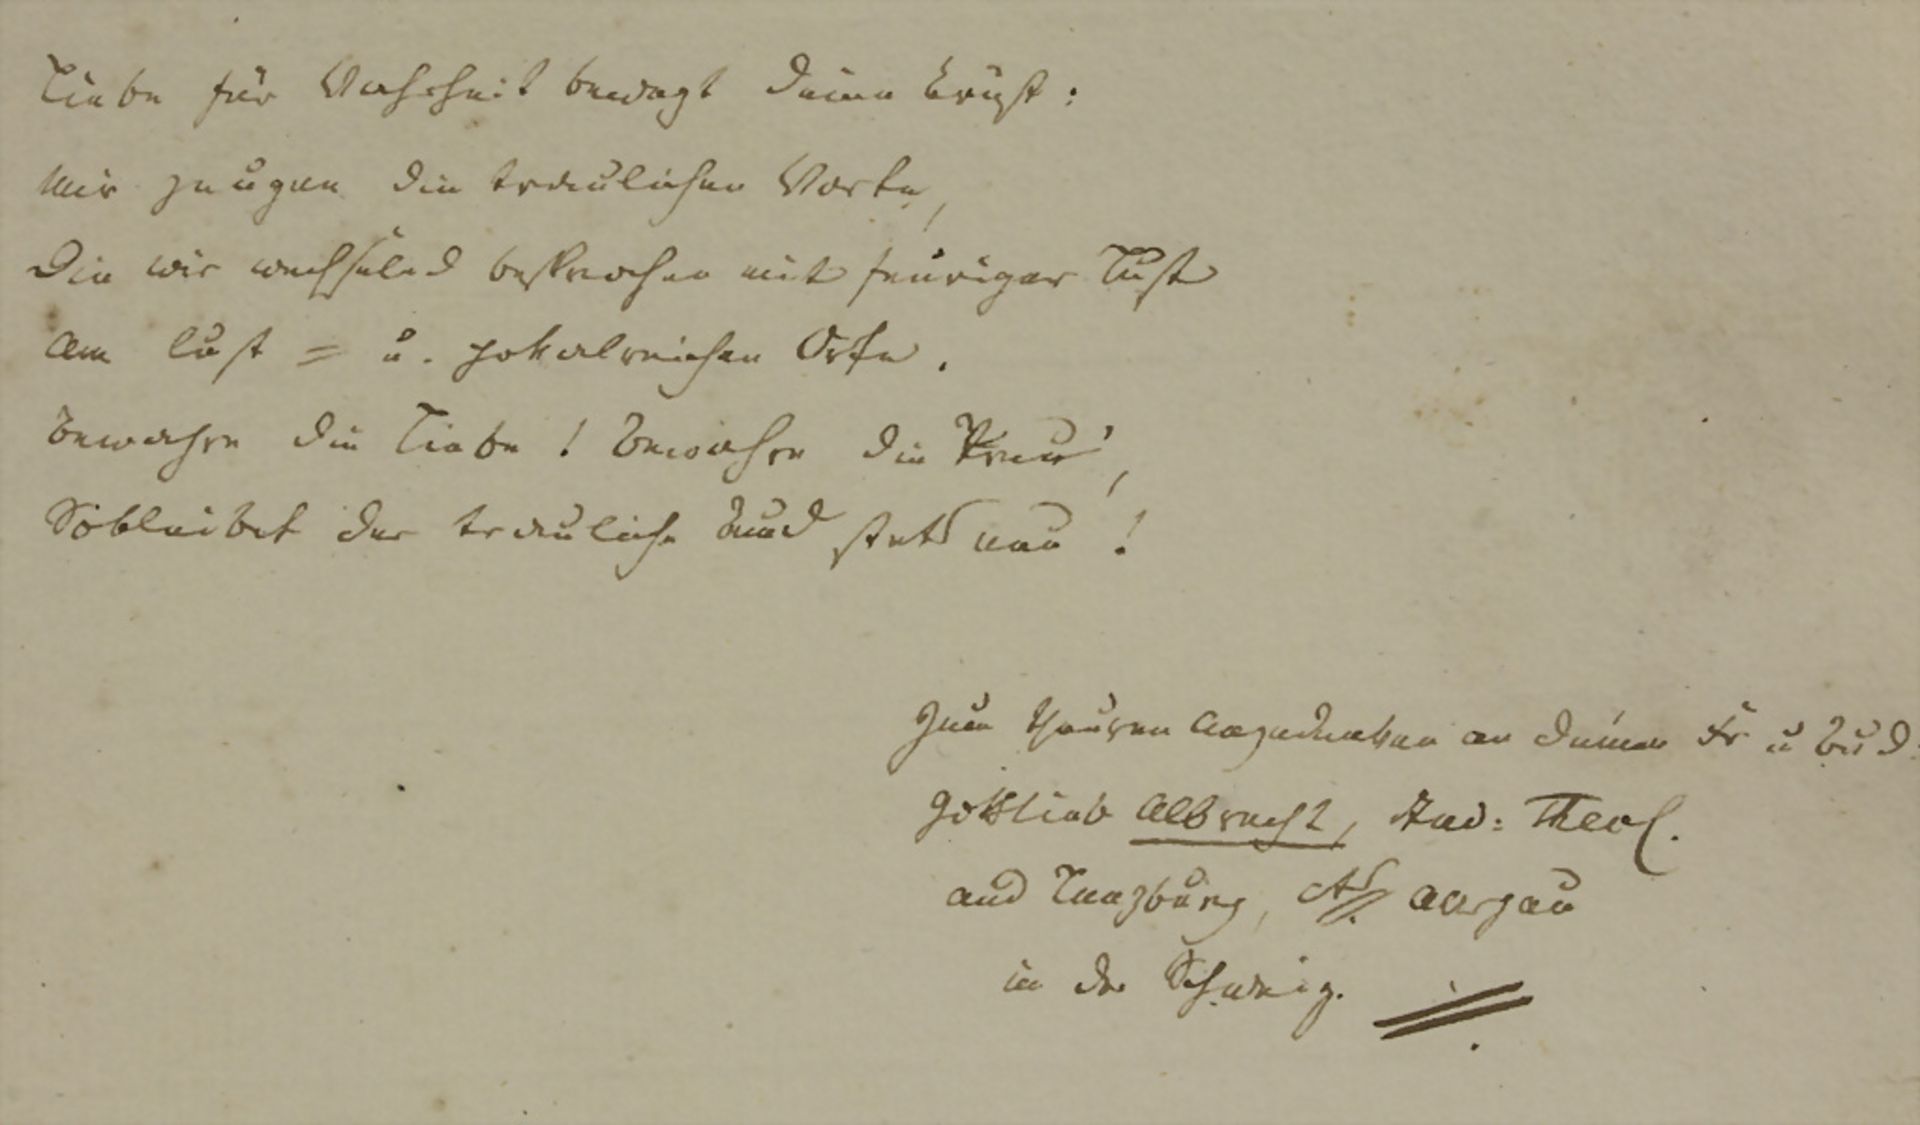 Liebe für Wahrheit bewegt deine Brust:
Mir zeugen die traulichen Worte,
Die wir wechselnd besprochen mit feuriger Lust
Am lust= u. pokalreichen Orte.
Bewahre die Liebe! Bewahre die Treu',
So bleibet der trauliche Bund stets neu!
Zum theuren Angedenken an deinen Fr u Bud:
Gottlieb Albrecht, Stud: Theol.
aus Lenzburg, Ct. Aargau
in der Schweiz.